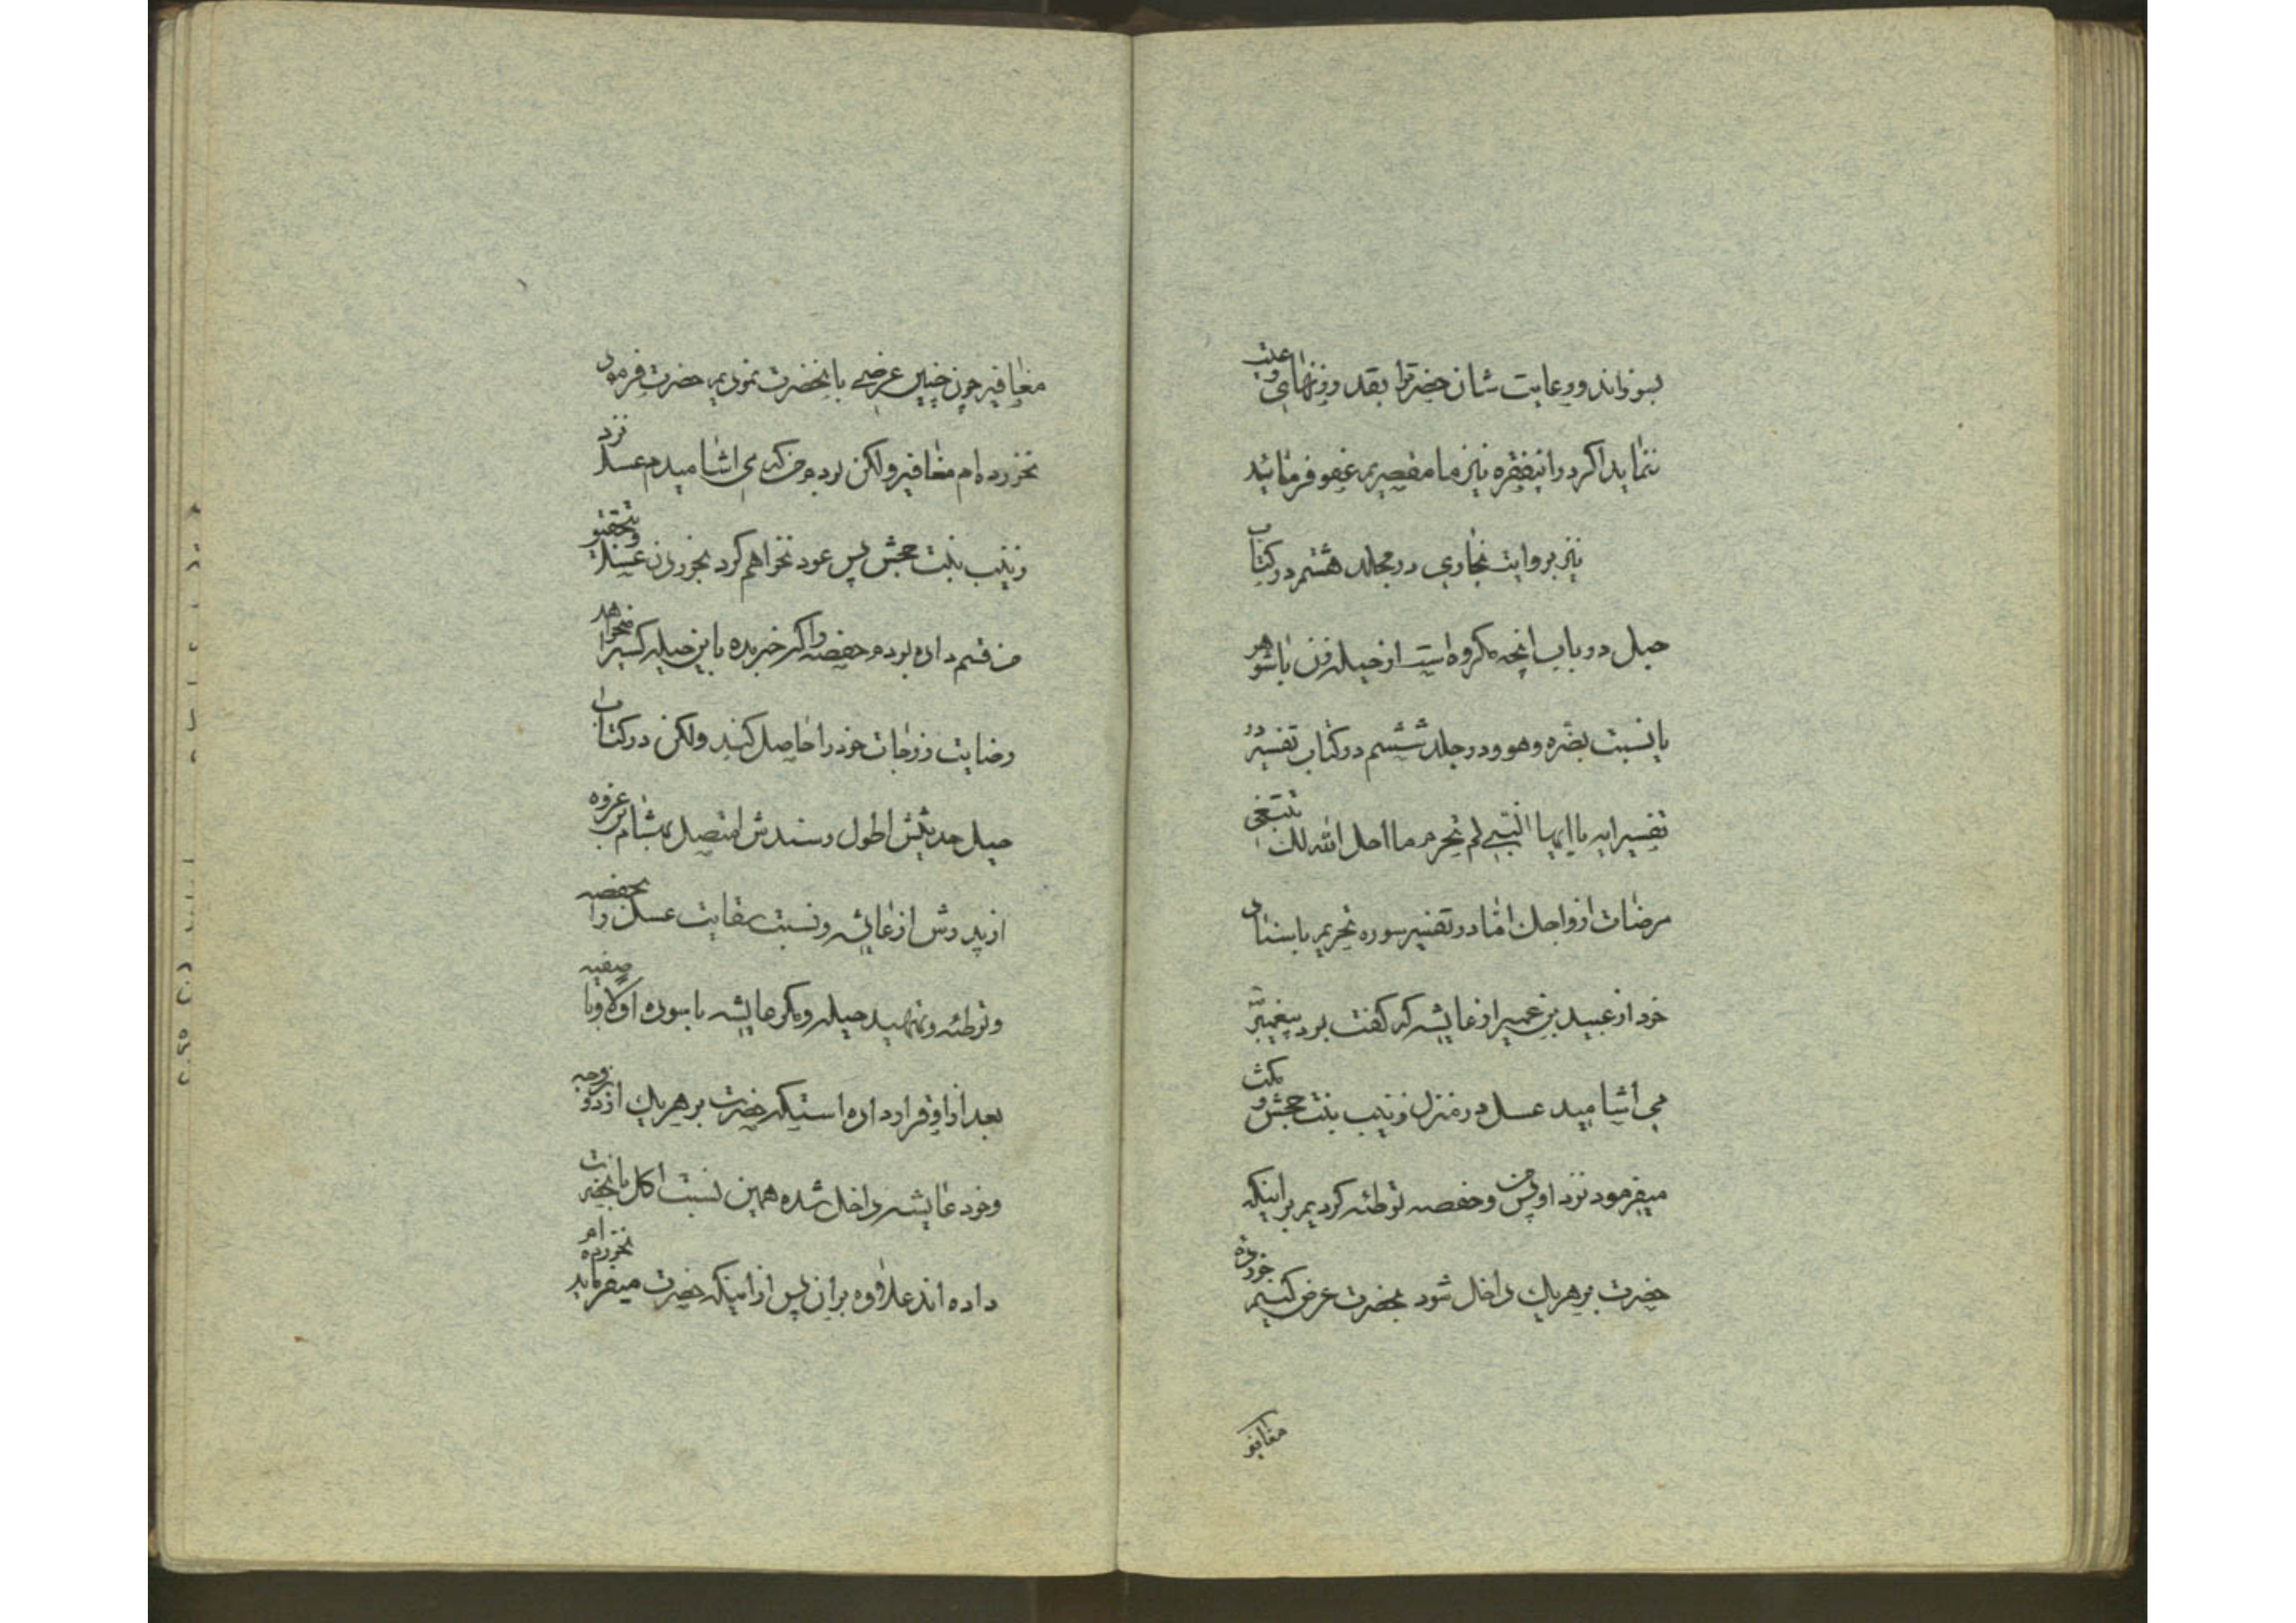 بسوزاند و رعایت شان حضرترا بقدر زنهای عتبه
ننماید اگر در اینفقره نیز ما مقصریم عفو فرمائید
نیز بروایت بخاری در مجلد هشتم در کتاب
حیل در باب انچه مکروه است از حیله زن با شوهر
یا نسبت بضره و هوو در جلد ششم در کتاب تفسیر در
تفسیر ایه یا ایها النبی لم تحرم ما احل الله لک تبتغی
مرضات ازواجک اما در تفسیر سوره تحریم باسناد
خود از عبید بن عمیر از عایشه که گفت بود پیغمبر
می اشامید عسل در منزل زینب بنت جحش و مکث
میفرمود نزد او پس من و حفصه توطئه کردیم بر اینکه
حضرت بر هر یک داخل شود بحضرت عرض کنیم خورده
مغافیر
مغافیر چون چنین عرضی بانحضرت نمودیم حضرت فرمود
نخورده ام مغافیر ولکن بودم من که می اشامیدم عسل نزد
زینب بنت جحش پس عود نخواهم کرد بخوردن عسل و بتحقیق
من قسم داده بودم حفصه را که خبر مده باین حیله کسیرا میخواهد
رضایت زوجات خود را حاصل کند ولکن در کتاب
حیل حدیثش اطول و سندش متصل بهشام بن عروه
از پدرش از عایشه و نسبت سقایت عسل را بحفصه
و توطئه و تمهید حیله و مکر عایشه با سوده اولا و با صفیه
بعد از او قرار داده استکه حضرت بر هر یک از دو زوجه
و خود عایشه داخل شده همین نسبت اکل بانحضرت
داده اند علاوه بر ان پس از اینکه حضرت میفرماید نخورده ام